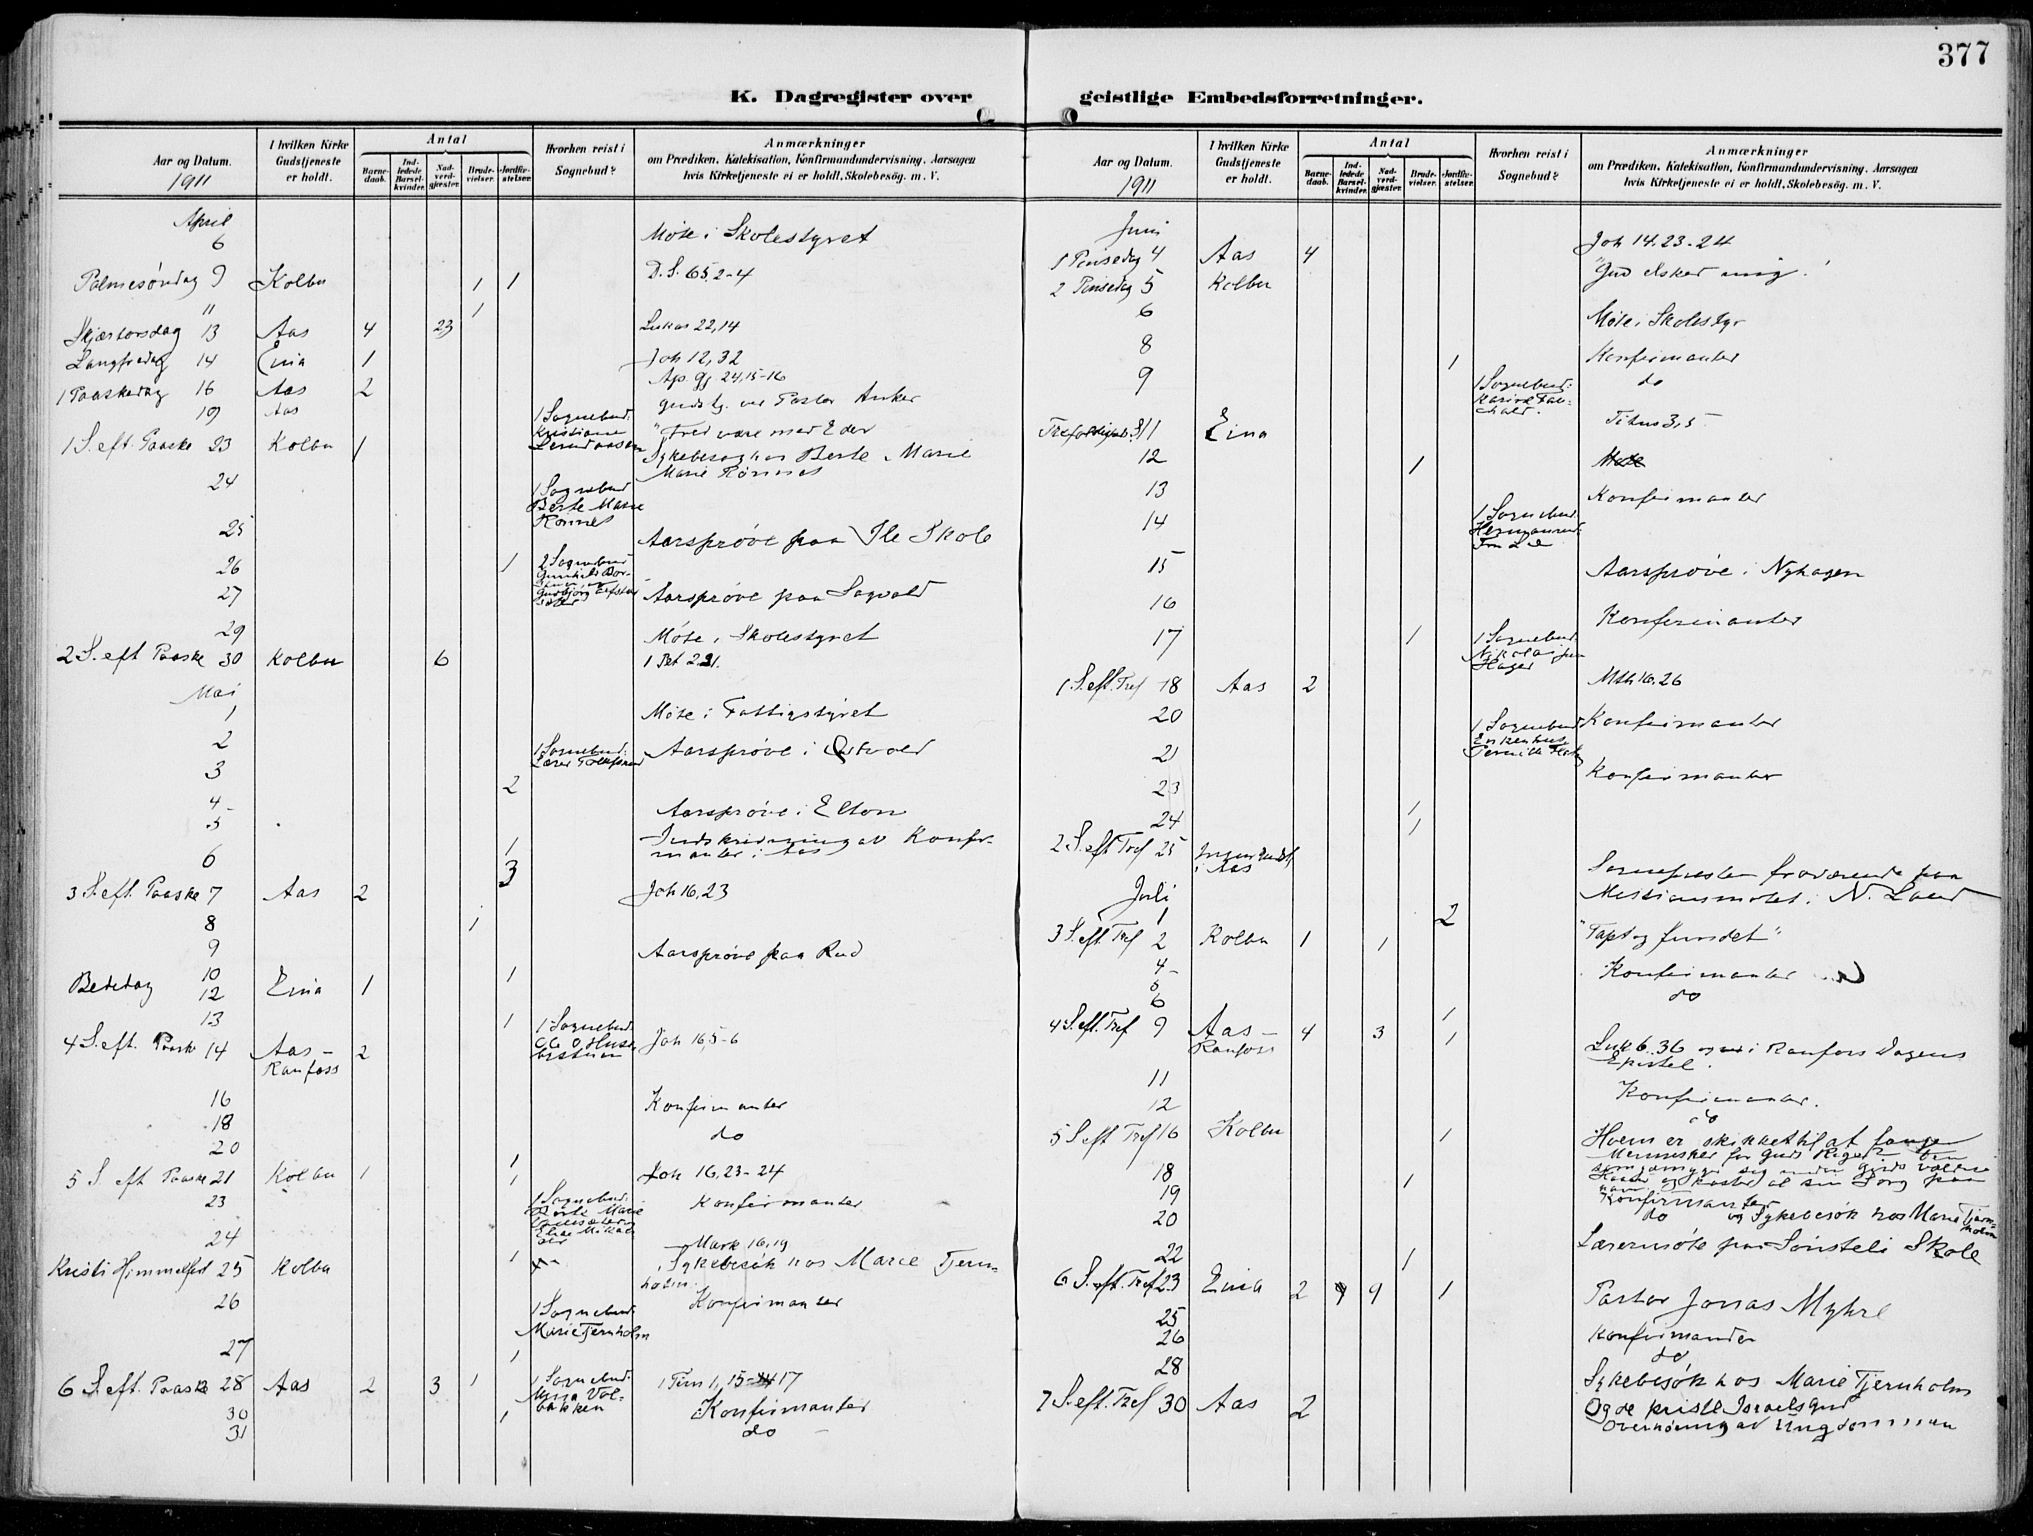 377
K. Dagregister over geistlige Embedsforretninger.
Aar og Datum. 1911
I hvilken Kirke Gudstjeneste er holdt.
Antal
Barne-daab.
Ind-ledede Barsel-kvinder.
Nad-verd-gjæster.
Brude-vielser.
Jordfæ-stelser.
Hvorhen reist i Sognebud?
Anmærkninger
om Prædiken, Katekisation, Konfirmandundervisning, Aarsagen
hvis Kirketjeneste ei er holdt, Skolebesøg. m. V.
April
6 Møte i Skolestyret
Palmesøndag 9 Kolbu 1 1 D.S. 65, 2-4
11 1
Skjærtorsdag 13 Aas 4 23 Lukas 22,14
Langfredag 14 Eina 1 Joh 12,32
1 Paaskedag 16 Aas 2 Ap. Gj. 24,15-16
19 Aas Gudstj. ved Pastor Anker
1 S. eft. Paaske 23 Kolbu 1 1 Sognebud: Kristiane "Fred være med Eder
Sykebesøg hos Berte Marie
Marie Rønnes
24 1 Sognebud Berte Marie Rønnes
25 Aarsprøve paa Ile Skole
26 1 2 Sognebud
27 Aarsprøve paa Sogvold
29 Møte i Skolestyret
2 S. eft Paaske 30 Kolbu 6 1 Pet 2 21.
Mai
1 Møte i Fattigstyret
2 1 Sognebud: Aarsprøve i
3 2
4 Aarsprøve i Elton
5 Indskrivning av Konfir-
manter i Aas 1
6 3
3 S. eft. Paaske 7 Aas 2 Joh 16,23
8 1
9 Aarsprøve paa Rud
10 1
Bededag 12 Eina 1
13 1 1 Sognebud
4 S. eft. Paaske 14 Aas - Raufoss 2 Joh 16,5-6
16 Konfirmanter
18 do
20 1
5 S. eft Paaske 21 Kolbu 1 1 Joh 16,23-24
23 1 Sognebud: Berte Marie Konfirmanter
24 Mark 16,19
Kristi Himmelfart 25 Kolbu 1 Sykebesøk hos Marie Tjern-
holm.
26 1 Sognebud: Marie Tjernholm Konfirmanter
27 1
6 S. eft. Paaske 28 Aas 2 3 1 1 Sognebud: 1 Tim 1, 15-17
30 1 Konfirmanter
31 do
Aar og Datum. 1911
I hvilken Kirke Gudstjeneste er holdt.
Antal
Barne-daab.
Ind-ledede Barsel-kvinder.
Nad-verd-gjæster.
Brude-vielser.
Jordfæ-stelser.
Hvorhen reist i Sognebud?
Anmærkninger
om Prædiken, Katekisation, Konfirmandundervisning, Aarsagen
hvis Kirketjeneste ei er holdt, Skolebesög. m. V.
Juni
1 Pinsedag 4 Aas 4 Joh 14. 23-24
2 Pinsedag 5 Kolbu "Gud elsker mig!
6 Møte i Skolestyr
8 1 Konfirmanter
9 1 Sognebud: do
11 Eina Titus 3,5
12 1 Møte
13 Konfirmanter
14 1 Sognebud:
15 Aarsprøve i Nyhagen
16 Konfirmanter
17 1 1 Sognebud: Nikolai
1 S. eft. Tref 18 Aas 2 Mth 16. 26
20 1 Sognebud Konfirmanter
21
23 1 Konfirmanter
24 1
2 S. eft Tref 25 Ingen Gudstj. i Aas Sognepresten fraværende paa
Missionsmøtet i N. Land
Juli
1 2
3 S. eft Tref 2 Kolbu 1 1 "Tapt og fundet"
4 Konfirmanter
5 do
6 1
4 S. eft. Tref 9 Aas - Raufoss 4 3 1 Luk 6. 36 i Raufoss Dagens
Epistel.
11 Konfirmanter.
12 do
5 S. eft Tref 16 Kolbu 1 Hvem er skikket til at fange
Mennesker for Guds Rige? Den
18 1
19 Konfirmanter
20 do og Sykebesøk hos Marie Tjern-
holm
22 1 Lærermøte paa Sønsteli Skole
6 S. eft. Tref 23 Eina 2 9 1 Pastor Jonas Myhre
25 Konfirmander
26 do
28 Sykebesøk hos Marie Tjernholm
7 S. eft. Tref 30 Aas 2 Og de priste Israels Gud
Overhøring av Ungdommen